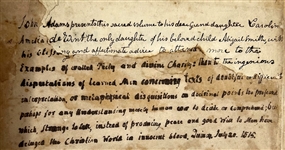 John Adams presents this sacred volume to his dear Grand daughter Caroline
Amelia de Wint the only daughter of his beloved child Abigail Smith, with
his Bless and affectionate advice to attend more to the
Examples of exalted Piety and divine Charity, than to the ingenious
disputations of learned Men concerning texts of doubtful
interpretation, or metaphysical disquisitions on doctrinal points too
perhaps for any Understanding merely human ever to decide or comprehend;
which, strange to tell, instead of promoting peace and good Will to Men have
deluged the Christian World in innocent blood. July 20. 1815